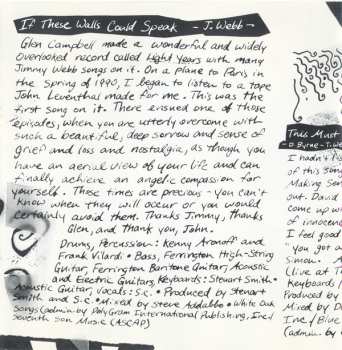 If These Walls Could Speak - J. Webb -
Glen Campbell made a wonderful and widely
overlooked record called Light Years with many
Jimmy Webb songs on it. On a plane to Paris in
the Spring of 1990, I began to listen to a tape
John Leventhal made for me. This was the
first song on it. There ensued one of those
episodes, when you are utterly overcome with
such a beautiful, deep sorrow and sense of
grief and loss and nostalgia, as though you
have an aerial view of your life and can
finally achieve an angelic compassion for
yourself. These times are precious - you can't
know when they will occur or you would
certainly avoid them. Thanks Jimmy, thanks
Glen, and thank you, John.
Drums, Percussion: Kenny Aronoff and
Frank Vilardi • Bass, Ferrington High-String
Guitar, Ferrington Baritone Guitar, Acoustic
and Electric Guitars, Keyboards: Steuart Smith •
Acoustic Guitar, Vocals: S.C. • Produced by Steuart
Smith and S.C. • Mixed by Steve Addabbo • White Oak
Songs (admin. by PolyGram International Publishing, Inc./
Seventh Son Music (ASCAP)
This Must
- D. Byrne - T. We
I hadn't
of this song
Making Sen
out. David
come up wi
of innocen
I feel good
"you got a
Simon.
(live at T
Keyboards
Produced by
Mixed by D
Inc./ Blue
(admin. by